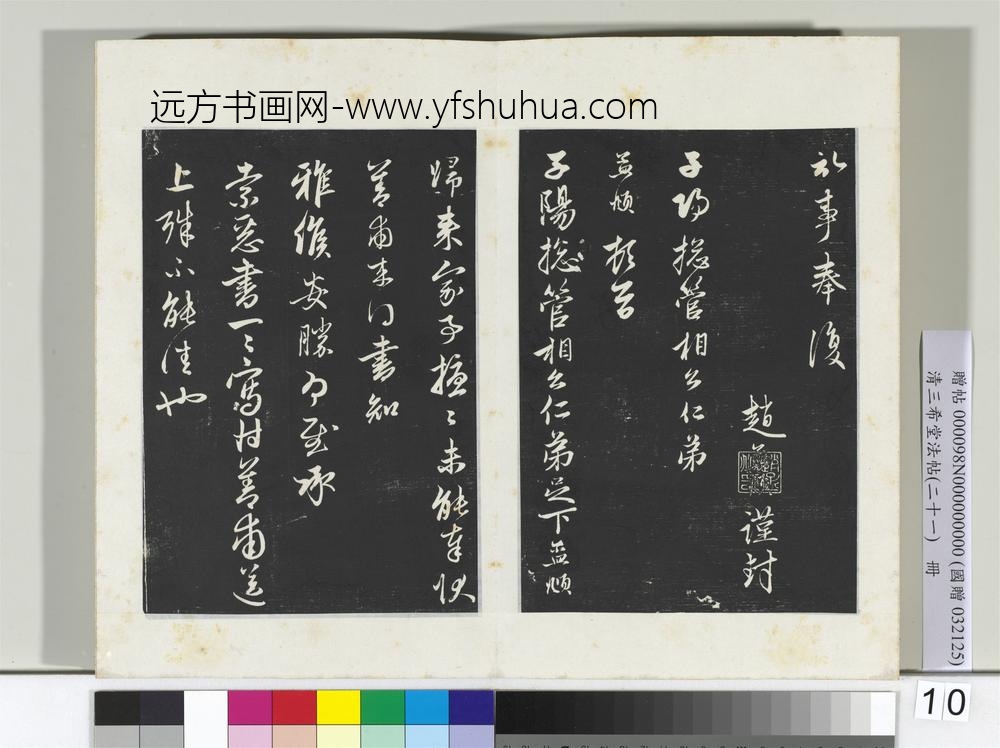 远方书画网-www.yfshuhua.com
記事奉復
趙
謹封
子陽摠管相公仁弟
孟頫頓首
子陽摠管相公仁弟足下孟頫
歸來家事擾々未能奉狀
善甫來得書知
雅候安勝為慰承
索惡書一々寫付善甫送
上殊不能佳也
贈帖 000098N000000000 (國贈 032125)
清三希堂法帖(二十一) 冊
10